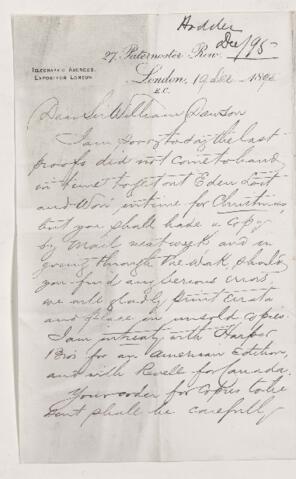 Hodder
Dec/95
27 Paternoster Row,
TELEGRAPHIC ADDRESS,
EXPOSITOR LONDON
London, 19 Dec 1895
E.C.
Dear Sir William Dawson
I am sorry to say the last
proofs did not come to hand
in time to get out Eden Lost
and Won in time for Christmas,
but you shall have a Copy
by Mail next week and in
going through the work, should
you find any serious errors
we will gladly print Errata
and place in unsold copies.
I am in treaty with Harper
Bros for an American Edition,
and with Revell for Canada.
Your order for Copies to be
sent shall be carefully